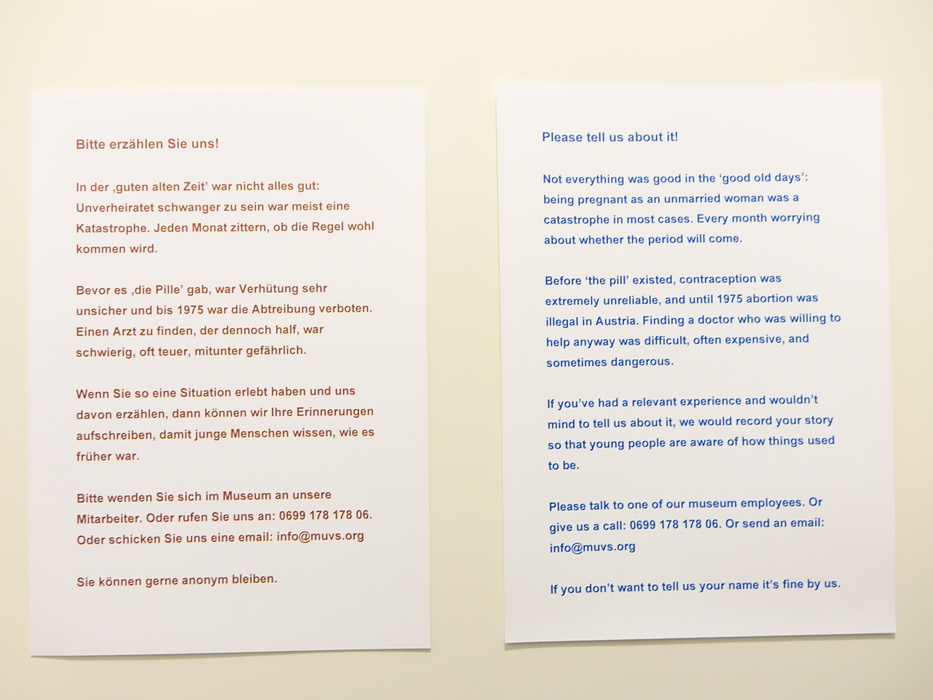 Bitte erzählen Sie uns!
In der ‚guten alten Zeit’ war nicht alles gut:
Unverheiratet schwanger zu sein war meist eine
Katastrophe. Jeden Monat zittern, ob die Regel wohl
kommen wird.
Bevor es ‚die Pille’ gab, war Verhütung sehr
unsicher und bis 1975 war die Abtreibung verboten.
Einen Arzt zu finden, der dennoch half, war
schwierig, oft teuer, mitunter gefährlich.
Wenn Sie so eine Situation erlebt haben und uns
davon erzählen, dann können wir Ihre Erinnerungen
aufschreiben, damit junge Menschen wissen, wie es
früher war.
Bitte wenden Sie sich im Museum an unsere
Mitarbeiter. Oder rufen Sie uns an: 0699 178 178 06.
Oder schicken Sie uns eine email: info@muvs.org
Sie können gerne anonym bleiben.
Please tell us about it!
Not everything was good in the ‘good old days’:
being pregnant as an unmarried woman was a
catastrophe in most cases. Every month worrying
about whether the period will come.
Before ‘the pill’ existed, contraception was
extremely unreliable, and until 1975 abortion was
illegal in Austria. Finding a doctor who was willing to
help anyway was difficult, often expensive, and
sometimes dangerous.
If you’ve had a relevant experience and wouldn’t
mind to tell us about it, we would record your story
so that young people are aware of how things used
to be.
Please talk to one of our museum employees. Or
give us a call: 0699 178 178 06. Or send an email:
info@muvs.org
If you don’t want to tell us your name it’s fine by us.